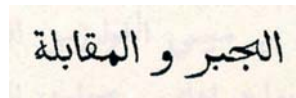 الجبر و المقابلة